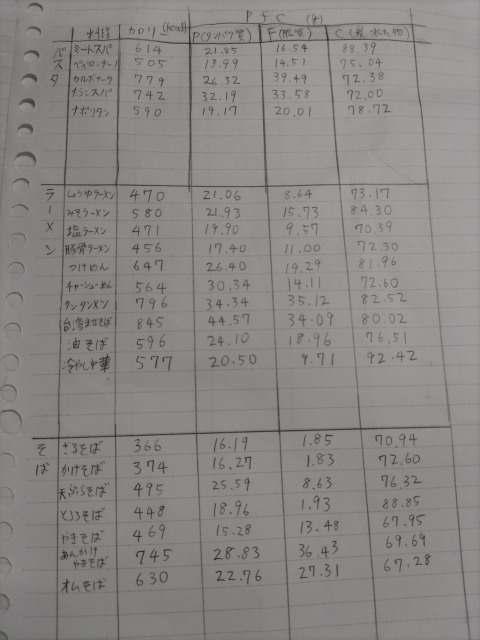 PFC (g)
料理 カロリー(kcal) P(タンパク質) F(脂質) C(炭水化物)
パスタ ミートスパ 614 21.85 16.54 88.39
ペペロンチーノ 505 13.99 14.51 75.04
カルボナーラ 779 26.32 39.49 72.38
742 32.19 33.58 72.00
ナポリタン 590 19.17 20.01 78.72
ラーメン しょうゆラーメン 470 21.06 8.64 73.17
みそラーメン 580 21.93 15.73 84.30
塩ラーメン 471 19.90 9.57 70.39
豚骨ラーメン 456 17.40 11.00 72.30
つけめん 647 26.40 19.29 81.96
チャーシューめん 564 30.34 14.11 72.60
タンタンメン 796 34.34 35.12 82.52
台湾まぜそば 845 44.57 34.09 80.02
油そば 596 24.10 18.96 76.51
冷やし中華 577 20.50 9.71 92.42
そば ざるそば 366 16.19 1.85 70.94
かけそば 374 16.27 1.83 72.60
天ぷらそば 495 25.59 8.63 76.32
とろろそば 448 18.96 1.93 88.85
やきそば 469 15.28 13.48 67.95
あんかけやきそば 745 28.83 36.43 69.69
オムそば 630 22.76 27.31 67.28